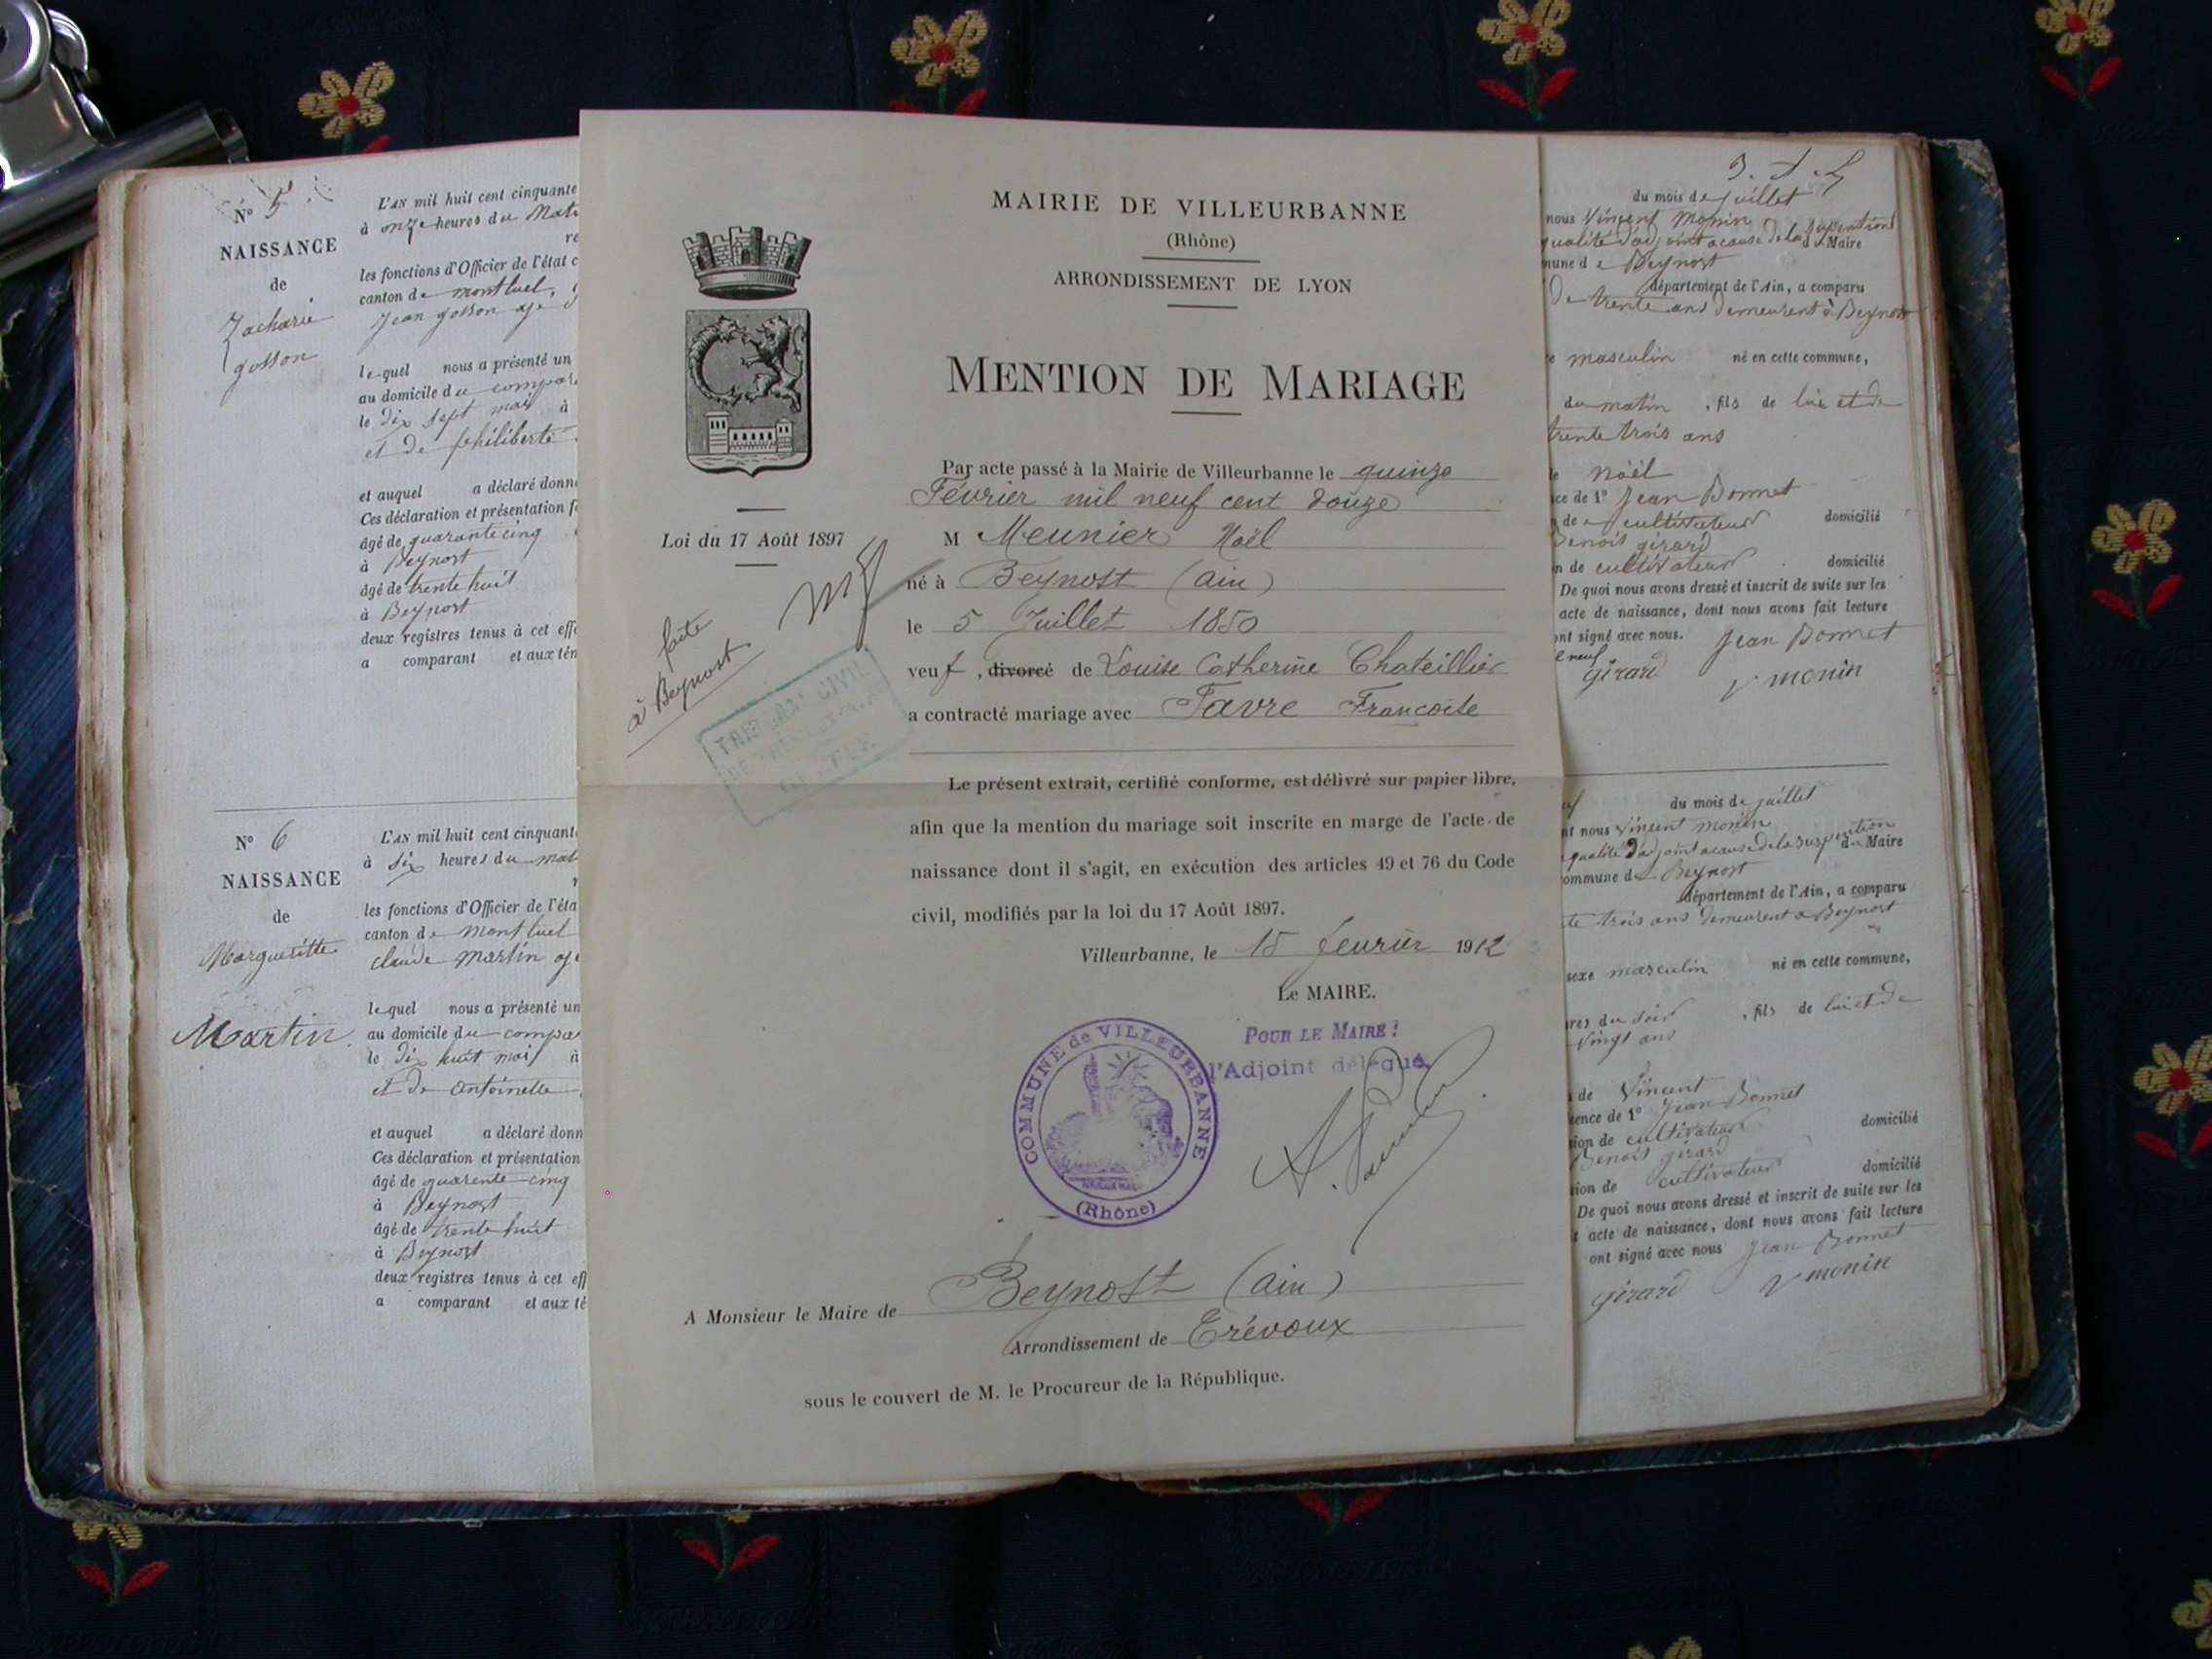 N° 5
NAISSANCE
de
Zacharie
gosson
L'AN mil huit cent cinquante
à onze heures du Mati
les fonctions d'Officier de l'état c
canton de montluel,
Jean gosson age
lequel nous a présenté un
au domicile du compar
le dix sept mai à
et de philiberte
et auquel a déclaré donn
Ces déclaration et présentation f
âgé de quarante cinq
à Beynost
âgé de trente huit
à Beynost
deux registres tenus à cet effe
a comparant et aux tém
N° 6
NAISSANCE
de
Margueritte
Martin
L'AN mil huit cent cinquant
à six heures du mat
les fonctions d'Officier de l'éta
canton de montluel
claude martin age
lequel nous a présenté un
au domicile du compar
le dix huit mai à
et de antoinette
et auquel a déclaré donn
Ces déclaration et présentation
âgé de quarente cinq
à Beynost
âgé de trente huit
à Beynost
deux registres tenus à cet eff
a comparant et aux té
MAIRIE DE VILLEURBANNE
(Rhône)
ARRONDISSEMENT DE LYON
MENTION DE MARIAGE
Loi du 17 Août 1897
faite
à Beynost
TRIBUNAL CIVIL
Par acte passé à la Mairie de Villeurbanne le quinze
Février mil neuf cent douze
M Meunier Noël
né à Beynost (Ain)
le 5 Juillet 1850
veuf, divorcé de Louise Catherine Chateillier
a contracté mariage avec Favre Francoise
Le présent extrait, certifié conforme, est délivré sur papier libre,
afin que la mention du mariage soit inscrite en marge de l'acte de
naissance dont il s'agit, en exécution des articles 49 et 76 du Code
civil, modifiés par la loi du 17 Août 1897.
Villeurbanne, le 15 fevrier 1912
Le MAIRE.
POUR LE MAIRE:
l'Adjoint délégué,
COMMUNE de VILLEURBANNE
(Rhône)
A Monsieur le Maire de Beynost (Ain)
Arrondissement de Trévoux
sous le couvert de M. le Procureur de la République.
du mois de juillet
nous Vincent Monin
qualité d'adjoint a cause de la suspention du Maire
mune de Beynost
département de l'Ain, a comparu
De trente ans demeurent à Beynost
e masculin né en cette commune,
du matin, fils de lui et de
trente trois ans
de Noël
ce de 1° Jean Bonnet
de cultivateur domicilié
Benoit girard
n de cultivateur domicilié
De quoi nous avons dressé et inscrit de suite sur les
acte de naissance, dont nous avons fait lecture
ont signé avec nous. Jean Bonnet
girard V monin
du mois de juillet
nt nous Vincent monin
qualité d'adjoint a cause de la suspention du Maire
ommune de Beynost
département de l'Ain, a comparu
te trois ans demeurent a Beynost
sexe masculin né en cette commune,
res du soir, fils de lui et de
vingt ans
de Vincent
ence de 1° Jean Bonnet
ion de cultivateur domicilié
Benoit girard
ion de cultivateur domicilié
De quoi nous avons dressé et inscrit de suite sur les
t acte de naissance, dont nous avons fait lecture
ont signé avec nous Jean Bonnet
girard V monin